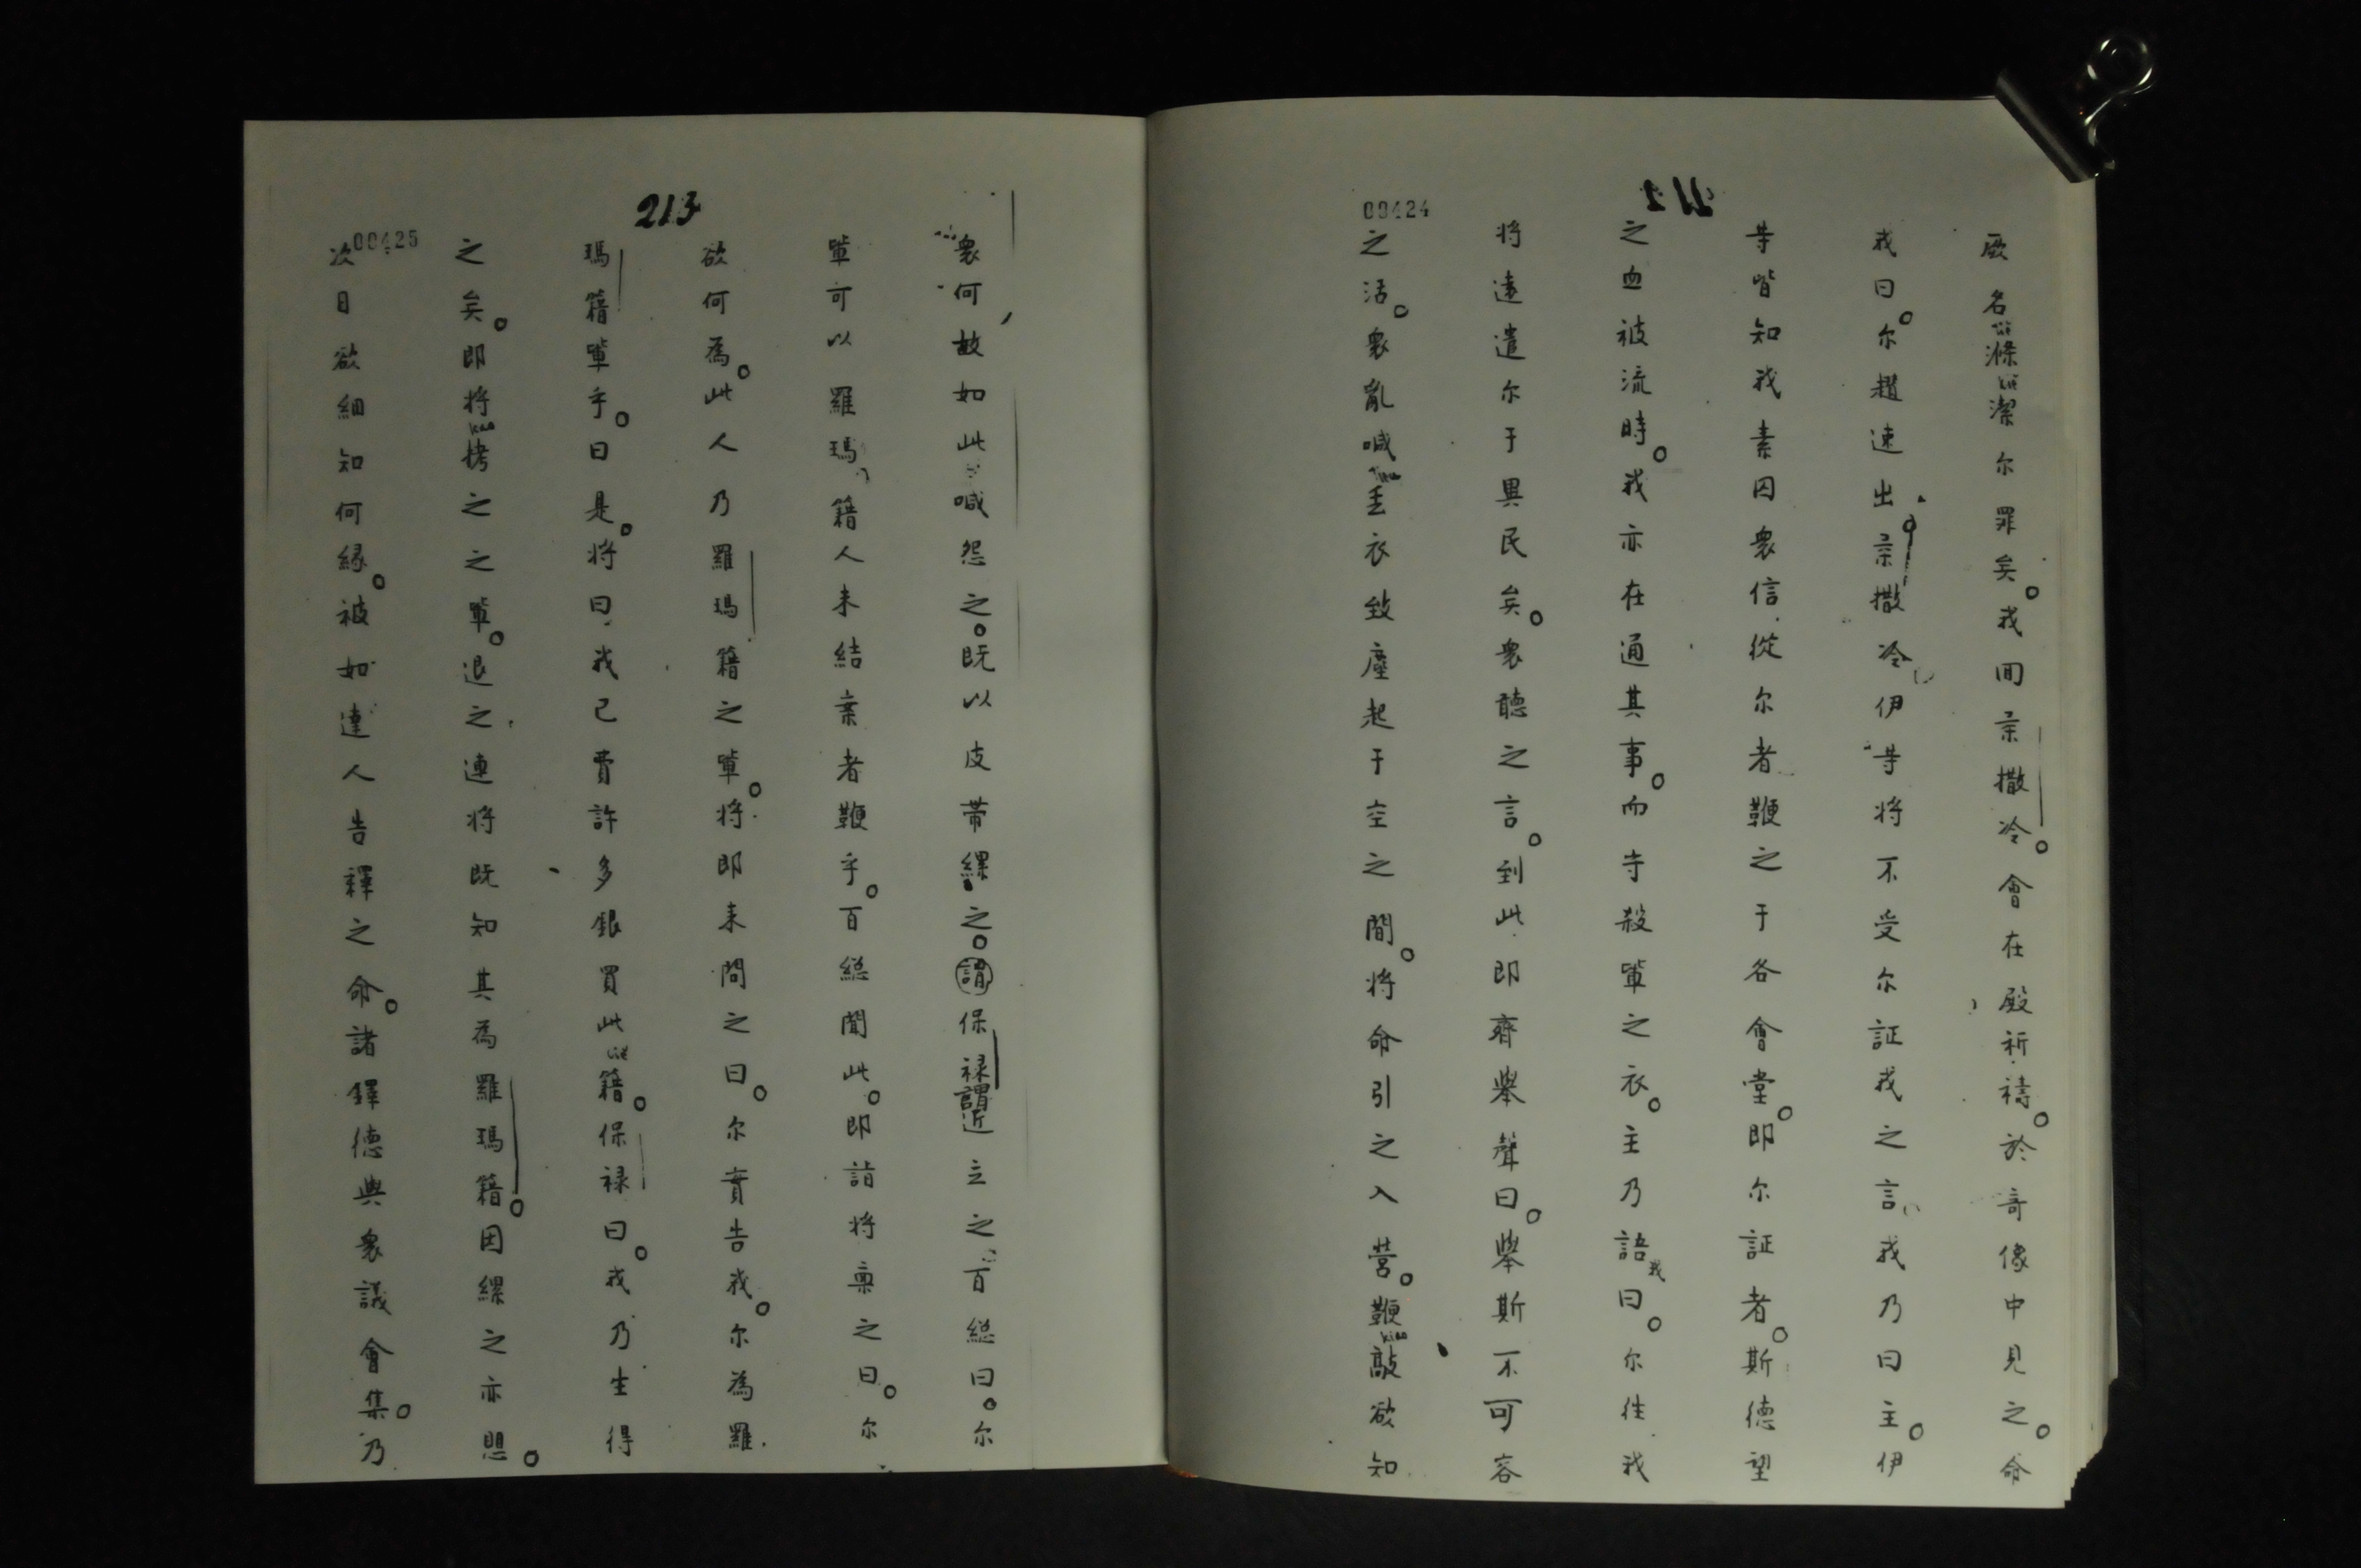 212
00424
厥名滌潔尔罪矣。我囬柔撒冷。會在殿祈禱。於奇像中見之。命
我曰。尔趕速出柔撒冷伊等將不受尔証我之言我乃曰主。伊
等皆知我素囚衆信從尔者鞭之于各會堂。即尔証者。斯德望
之血被流時。我亦在通其事。而守殺軰之衣。主乃語我曰。尔往我
將遠遣尔于異民矣。衆聽之言。到此即齊舉聲曰。舉斯不可容
之活。衆亂喊丟衣致塵起于空之間。將命引之入营。鞭敲欲知
213
00425
衆何故如此喊怨之。既以皮带縲之。謂保禄謂近立之百縂曰。尔
軰可以羅瑪籍人未結案者鞭乎。百縂聞此。即詣將禀之曰。尔
欲何為。此人乃羅瑪籍之軰。將即来問之曰。尔實告我。尔為羅
瑪籍軰乎。曰是。將曰我已費許多銀買此籍。保禄曰。我乃生得
之矣。即將拷之之軰。退之連將既知其為羅瑪籍。因縲之亦思。
次日欲細知何縁。被如達人告釋之命。諸鐸德與衆議會集。乃